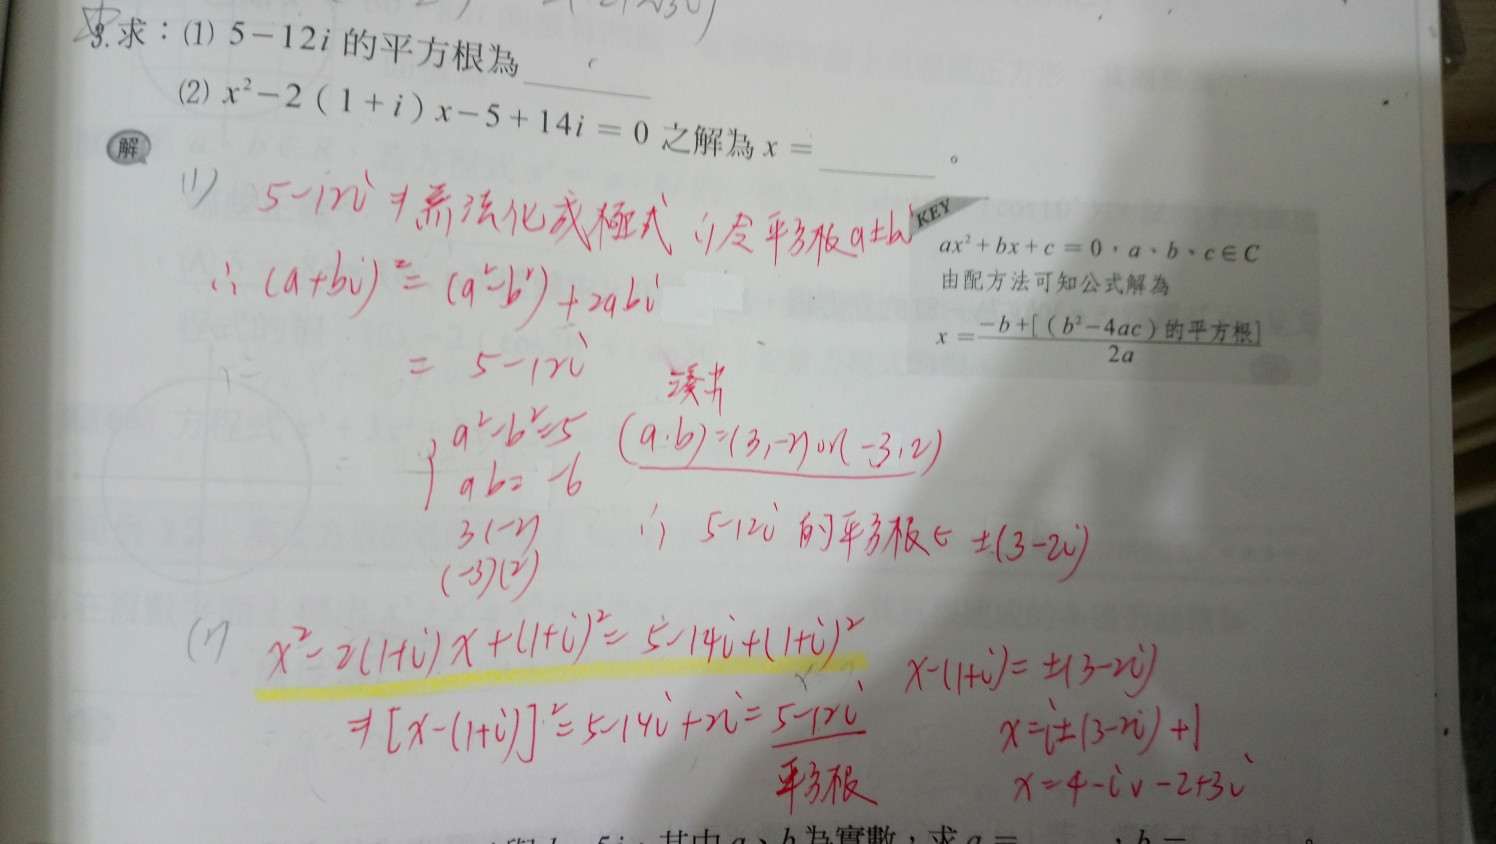 3.求：(1) 5－12i 的平方根為
(2) x²－2（1＋i）x－5＋14i ＝ 0 之解為 x ＝ 。
解
(1) 5-12i ⇒ 無法化成極式 ∴令平方根a±bi
∴ (a+bi)² = (a²-b²) + 2abi
= 5-12i
a²-b²=5
ab = -6
3(-2)
(-3)(2)
湊出
(a.b)=(3,-2) or (-3,2)
∴ 5-12i 的平方根 ±(3-2i)
KEY
ax²＋bx＋c ＝ 0，a、b、c∈C
由配方法可知公式解為
x ＝ −b＋[（b²−4ac）的平方根] / 2a
(2) x²-2(1+i)x+(1+i)²= 5-14i+(1+i)²
⇒ [x-(1+i)]²=5-14i+2i= 5-12i
平方根
x-(1+i)= ±(3-2i)
x=i±(3-2i)+1
x=4-i v -2+3i
其中 a、b 為實數，求 a ＝ ，b ＝ 。